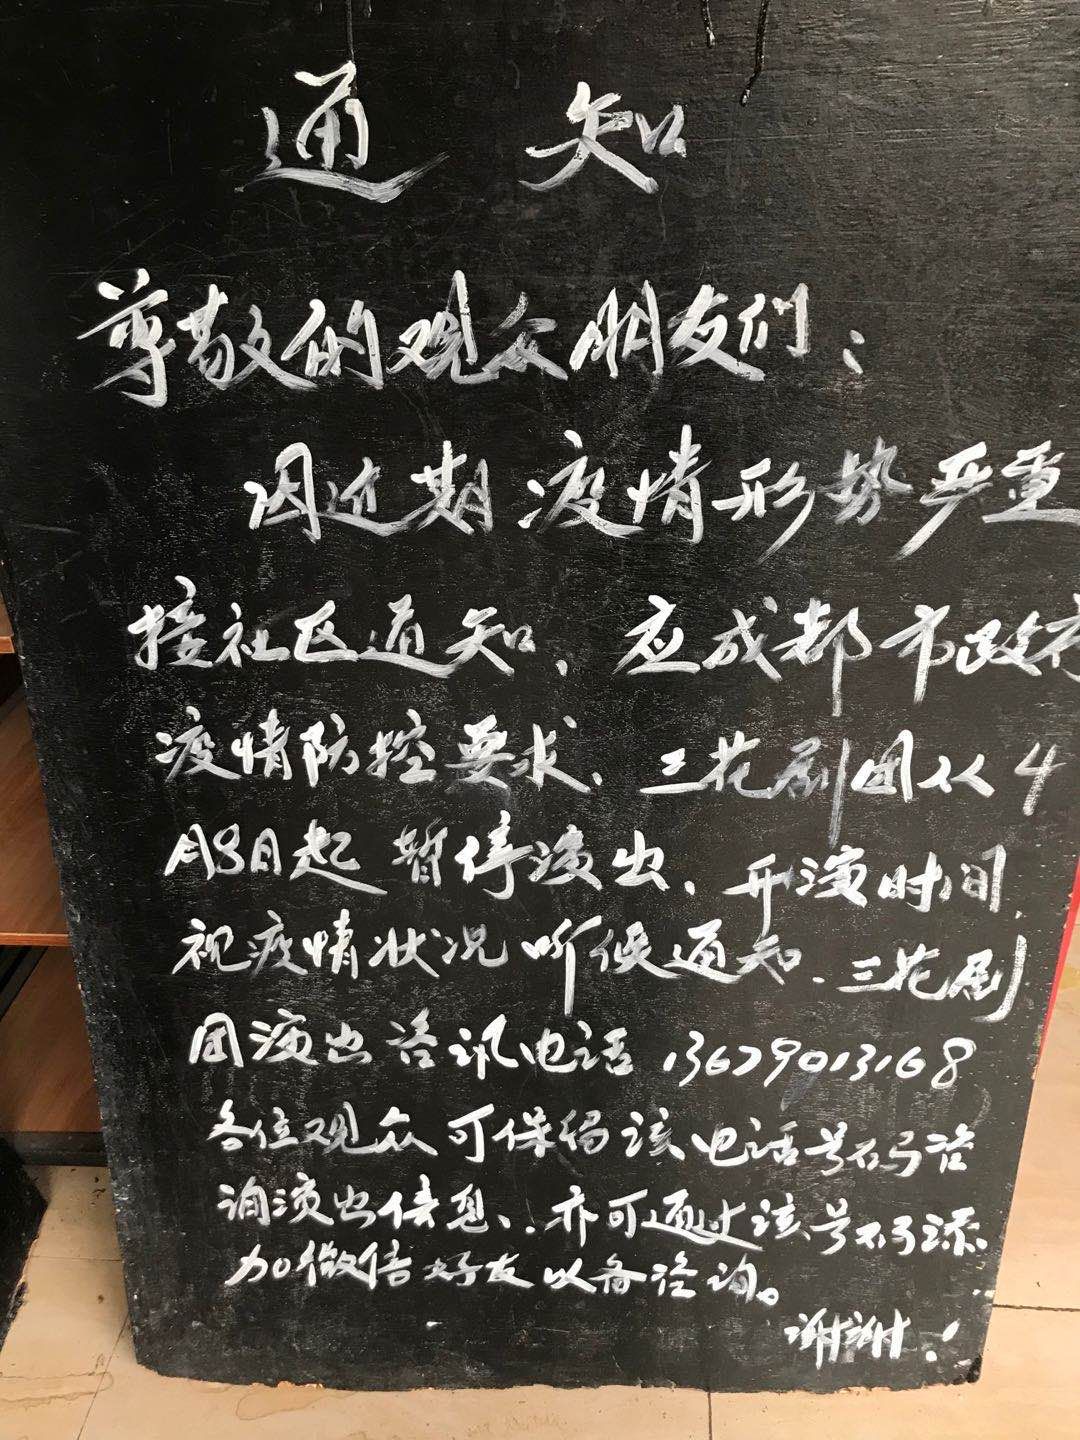 通知
尊敬的观众朋友们：
因近期疫情形势严重
接社区通知、应成都市政府
疫情防控要求、三花剧团从4
月8日起暂停演出、开演时间
视疫情状况听候通知、三花剧
团演出咨讯电话13679013168
各位观众可保留该电话号码咨
询演出信息、亦可通过该号码添
加微信好友以备咨询。
谢谢！